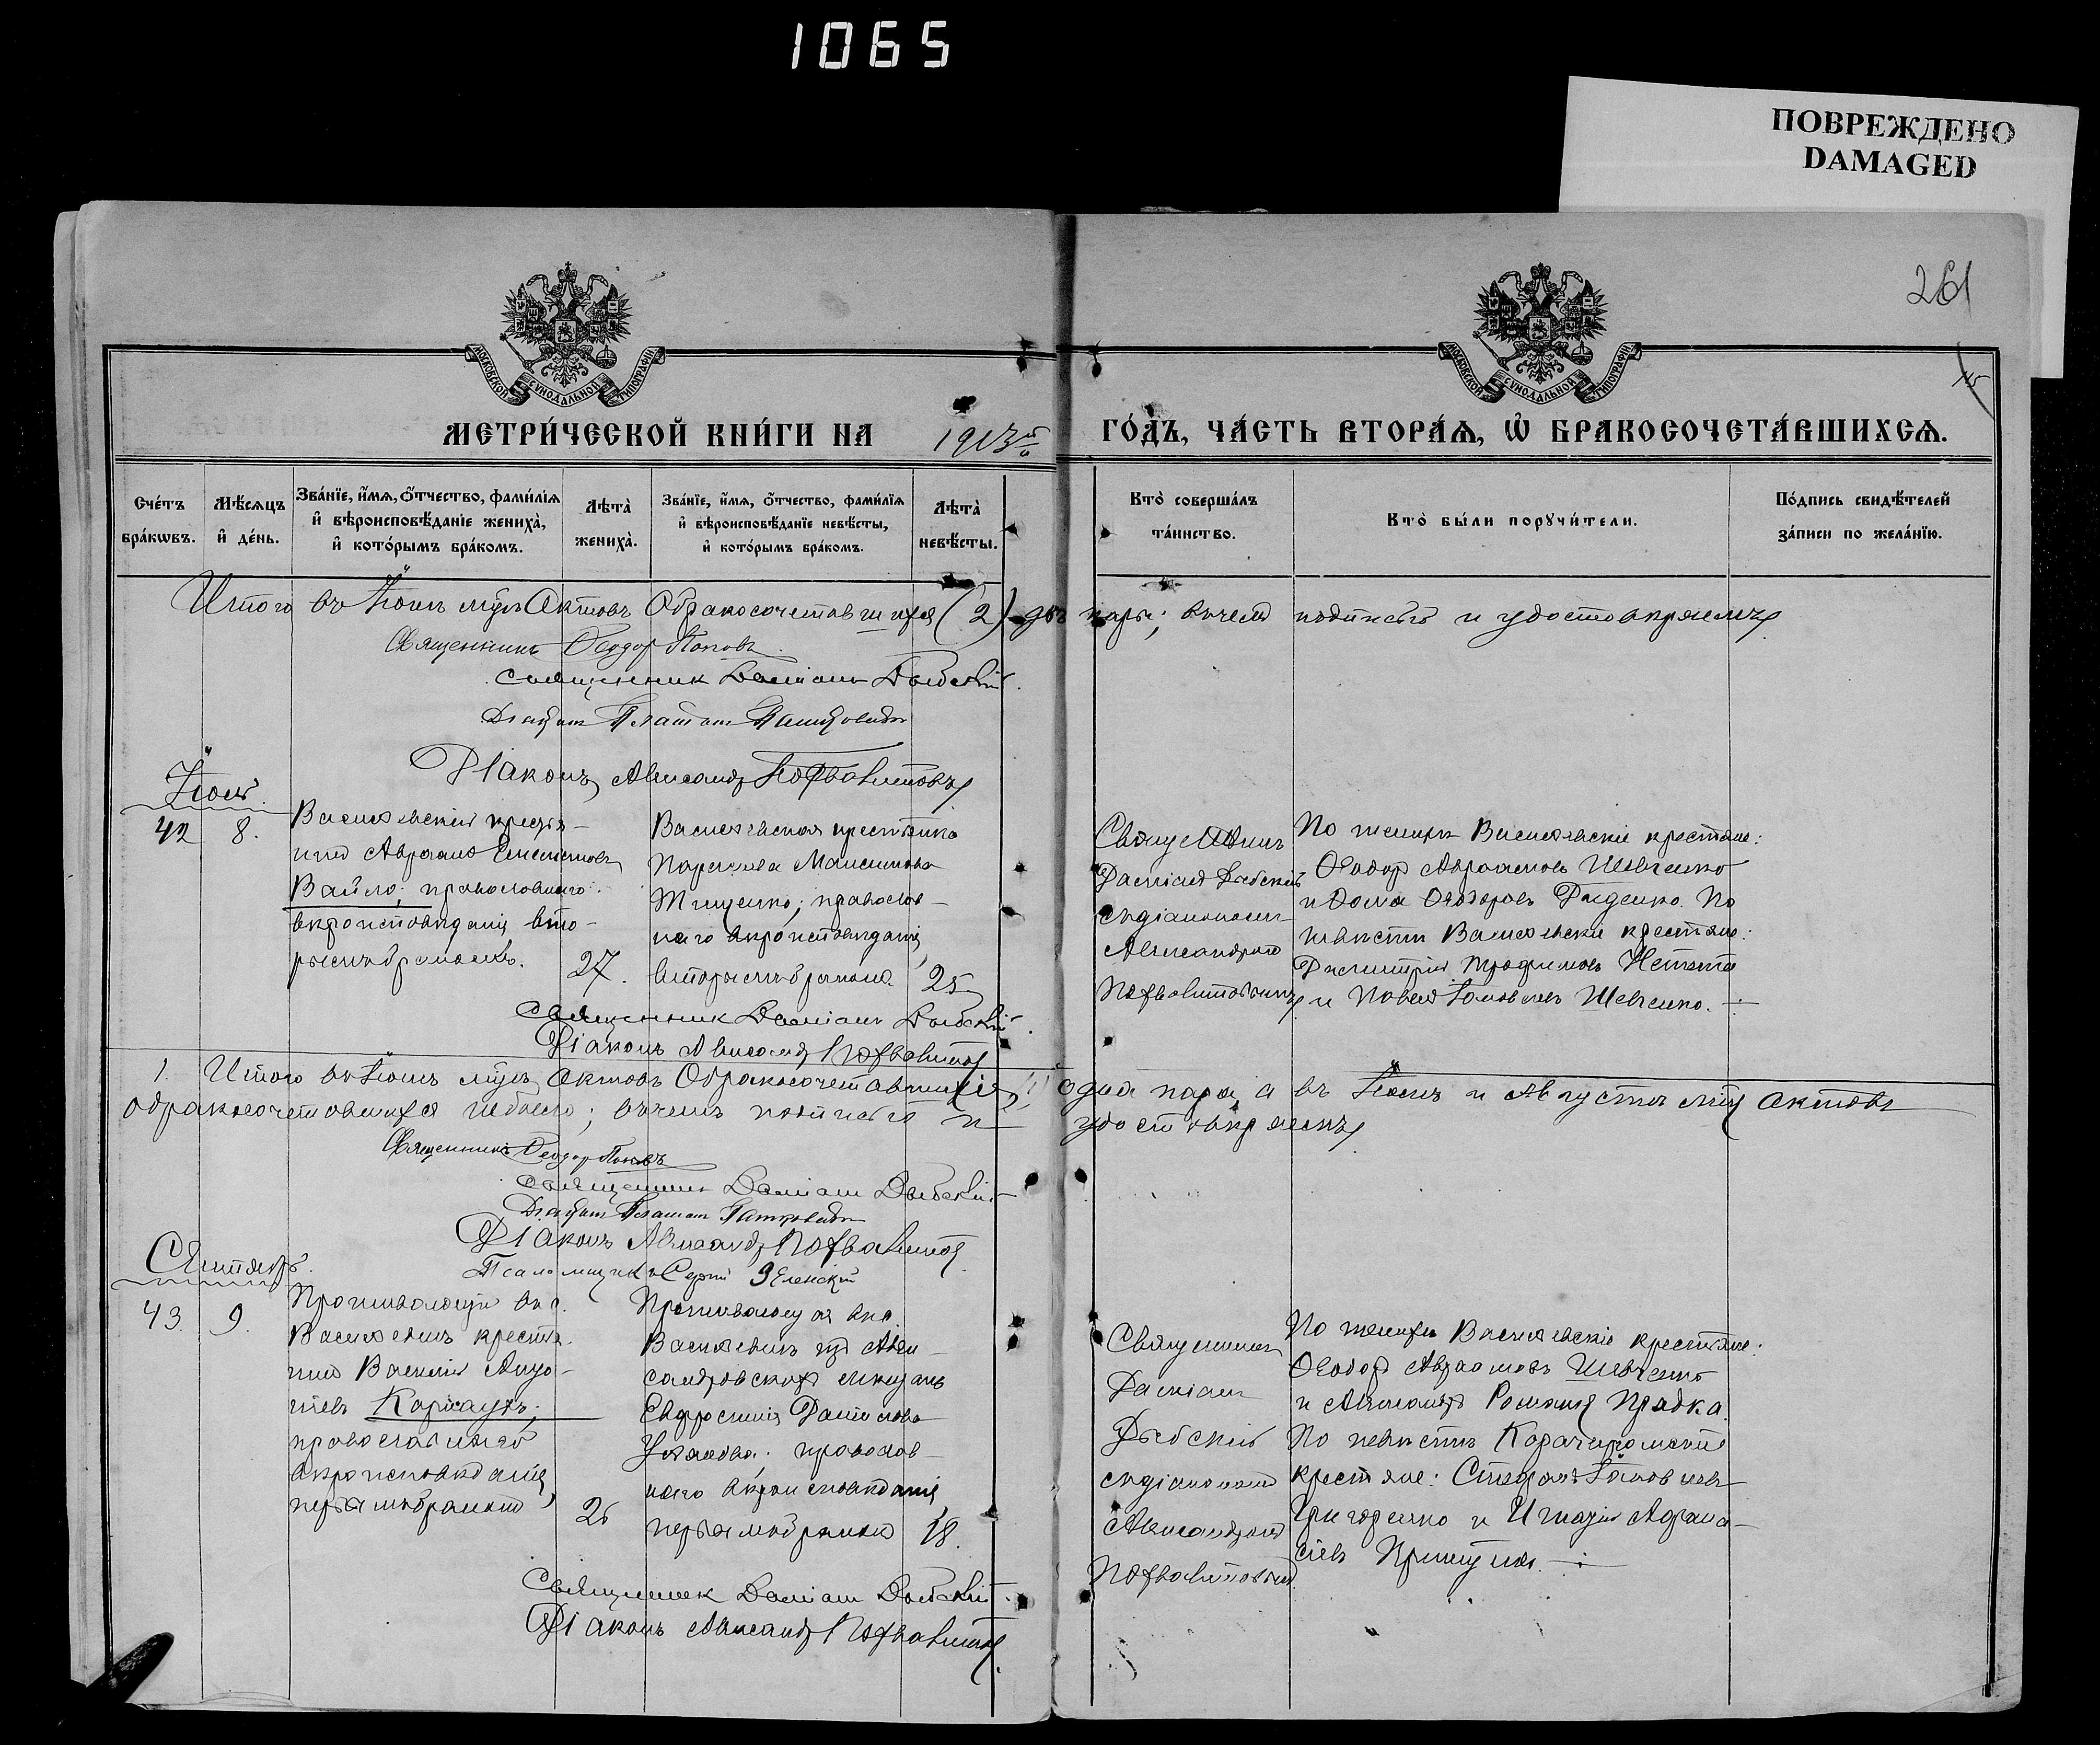 1065
ПОВРЕЖДЕНО
DAMAGED
261
МОСКОВСКОЙ СУНОДАЛЬНОЙ ТИПОГРАФІИ
МОСКОВСКОЙ СУНОДАЛЬНОЙ ТИПОГРАФІИ
МЕТРИ́ЧЕСКОЙ КНИ́ГИ НА 1913 ГО́ДЪ, ЧА́СТЬ ВТОРА́Ѧ, Ѡ҆ БРАКОСОЧЕТА́ВШИХСѦ.
Сче́тъ бра́кѡвъ.
Мѣ́сѧцъ и҆ де́нь.
Зва́нїе, и҆́мѧ, ѻ҆́тчество, фами́лїѧ
и҆ вѣроисповѣ́данїе жениха̀,
и҆ кото́рымъ бра́комъ.
Лѣта̀ жениха̀.
Зва́нїе, и҆́мѧ, ѻ҆́тчество, фами́лїѧ
и҆ вѣроисповѣ́данїе невѣ́сты,
и҆ кото́рымъ бра́комъ.
Лѣта̀ невѣ́сты.
Кто̀ соверша́лъ
та́инство.
Кто̀ бы́ли порꙋчи́тели.
По́дпись свидѣ́телей
за́писи по жела́нїю.
Итого въ Іюнѣ мцѣ Актовъ Обракосочетавшихся (2) двѣ пары; въ чемъ подписью и удостовѣряемъ
Священникъ Ѳеодоръ Поповъ
Священник Даміанъ Дыбскій
Діаконъ Александръ
Іюль
42 8.
Василевскій крестья-
нинъ Авраамъ
Вайло; православнаго
вѣроисповѣданія вто-
рымъ бракомъ. 27.
Василевская крестьянка
Параскева Максимова
Тищенко; православ-
наго вѣроисповѣданія,
вторымъ бракомъ. 25
Священникъ
Даміанъ Дыбскій
съ діакономъ
Александромъ
По женихѣ Василевскіе крестьяне:
Ѳеодоръ Авраамовъ Шевченко
и Ѳома Ѳеодоровъ Диденко. По
невѣстѣ Василевскіе крестьяне:
Димитрій Трофимовъ
и Павелъ Іаковлевъ Шевченко.
Священник Даміанъ Дыбскій
Діаконъ Александръ
1. Итого въ Іюлѣ мцѣ актовъ Обракосочетавшихся (1) одна пара, а въ Іюлѣ и Августѣ мцѣ актовъ
обракосочетавшихся небыло; въ чемъ подписью и удостовѣряемъ
Священникъ Ѳеодоръ Поповъ
Священник Даміанъ Дыбскій
Діаконъ Александръ
Псаломщикъ Сергій Зеленскій
Сентябрь.
43. 9.
Проживающій въ с.
Василевкѣ крестья-
нинъ Василій
православнаго
вѣроисповѣданія,
первымъ бракомъ 26
Проживающая въ с.
Василевкѣ изъ Алек-
сандровскихъ мѣщанъ
Евфросинія Данилова
православ-
наго вѣроисповѣданія,
первымъ бракомъ 18.
Священникъ
Даміанъ
Дыбскій
съ діакономъ
Александромъ
По женихѣ Василевскіе крестьяне:
Ѳеодоръ Авраамовъ Шевченко
и Александръ Романовъ Прядка.
По невѣстѣ
крестьяне: Стефанъ Іаковлевъ
Григоренко и Игнатій Афана-
сіевъ
Священник Даміанъ Дыбскій
Діаконъ Александръ